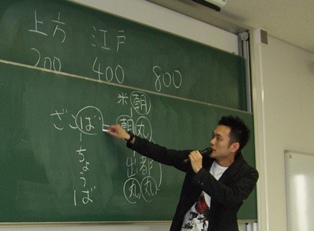 上方 江戸
200 400 800
米朝
ざこば 朝丸
ちょうば 出丸